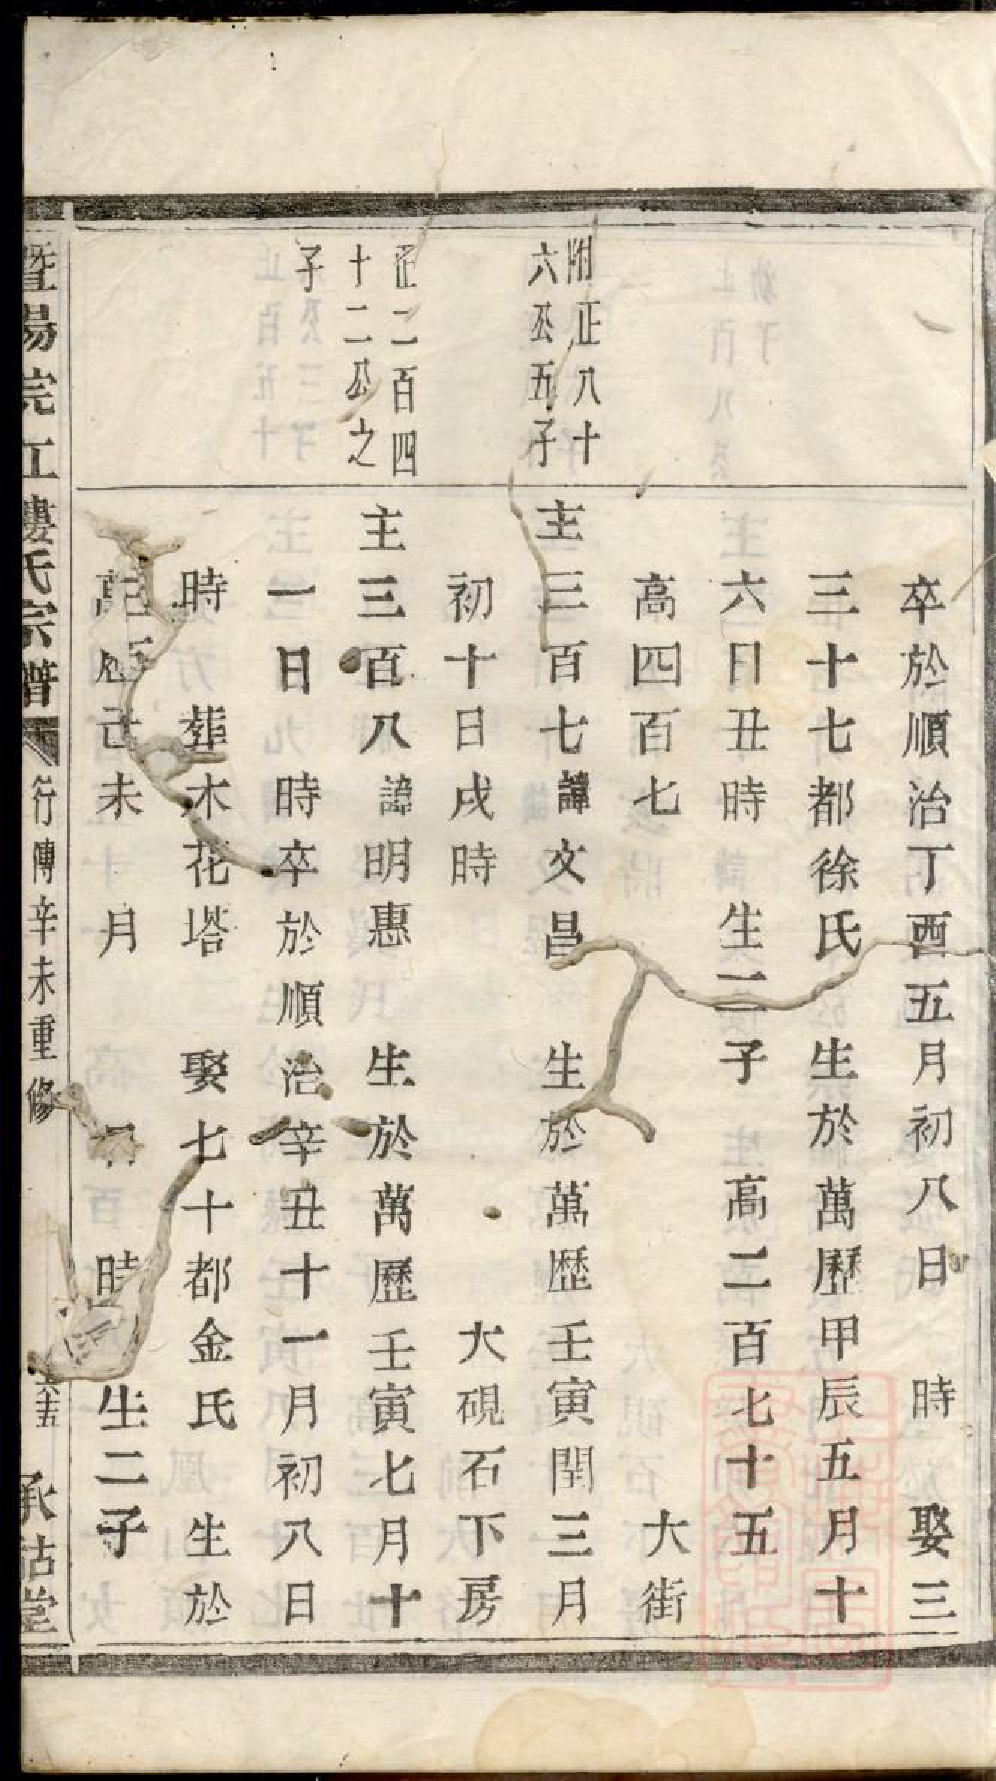 卒於順治丁酉五月初八日 時 娶三
三十七都徐氏 生於萬歷甲辰五月十
六日丑時 生二子 高二百七十五
高四百七 大街
附正八十
六公五子
主三百七諱文昌 生於萬歷壬寅閏三月
初十日戌時 大硯石下房
正二百四
十二公之
子
主三百八諱明惠 生於萬歷壬寅七月十
一日 時卒於順治辛丑十一月初八日
時 葬木花塔 娶七十都金氏 生於
萬歷己未十月 日 時 生二子
暨陽浣江婁氏宗譜 行傳辛未重修 承祜堂